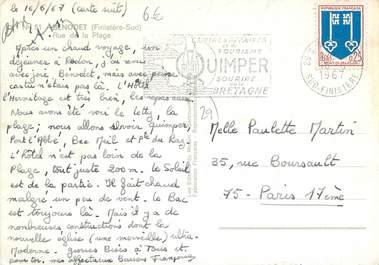 le 16/6/67 (carte suite)
6€
N° 51 BENODET (Finistère-Sud)
Rue de la Plage
Après un chaud voyage, un
déjeuner à Redon, j'ai
avec joie Benodet, mais avec peine
n'étais pas là. L'Hôtel
l'Hermitage est très bien, les repas aussi
Nous avons été voir le letty, la
plage; nous allons voir Quimper,
Pont l'Abbé, Beg Meil et Pte du Raz.
L'hôtel n'est pas loin de la
Plage, tout juste 200m. le Soleil
est de la partie. Il fait chaud
malgré un peu de vent. Le Bac
est toujours là. Mais il y a de
nombreuses constructions dont la
nouvelle église (une merveille) ultra-
Moderne. Grosses Bises à Tous et
pour toi, mes affectueux Baisers Françoise
TOURISME
QUIMPER
SOURIRE
DE LA
BRETAGNE
REPUBLIQUE FRANÇAISE
0,25
1967
SUD-FINISTERE
29
Melle Paulette Martin
35, rue Boursault
75 - Paris 17ème